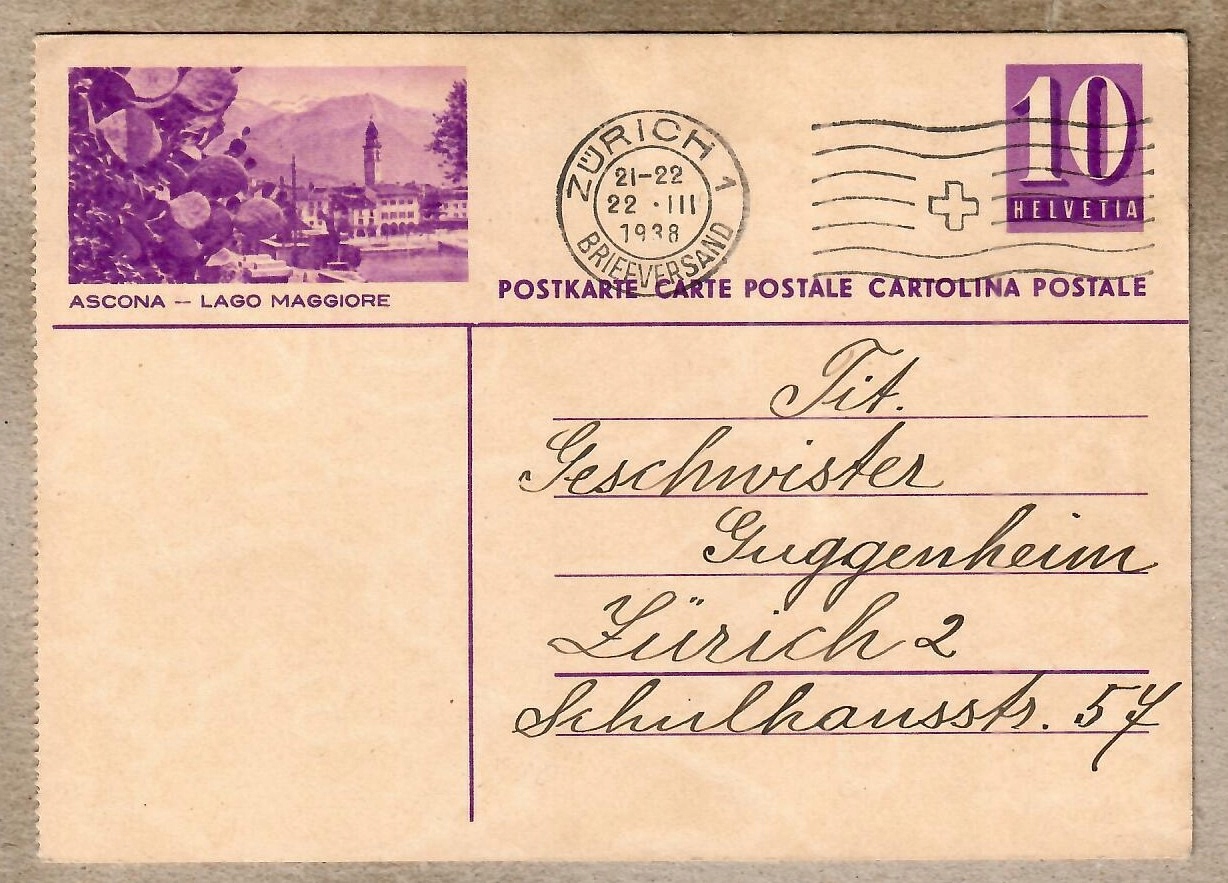 ASCONA — LAGO MAGGIORE
ZÜRICH 1
21-22
22 · III
1938
BRIEFVERSAND
10
HELVETIA
POSTKARTE CARTE POSTALE CARTOLINA POSTALE
Tit.
Geschwister
Guggenheim
Zürich 2
Schulhausstr. 57